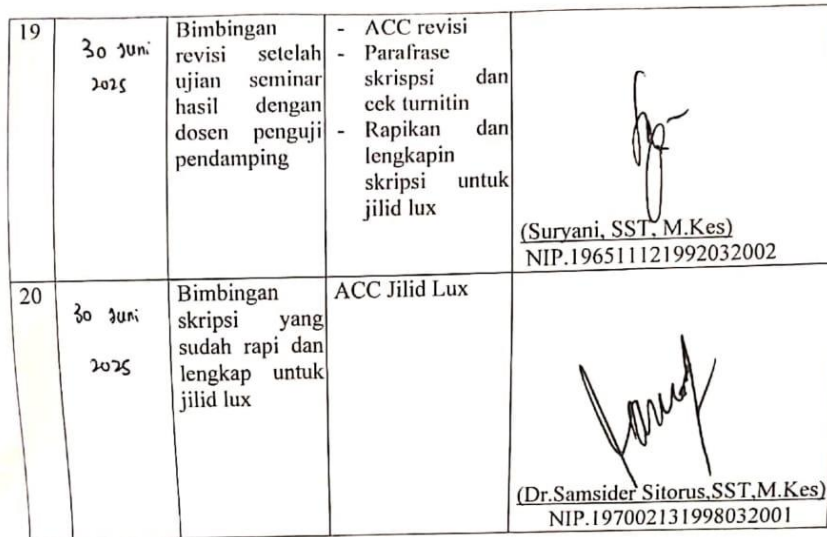 19
30 Juni
2025
Bimbingan
revisi setelah
ujian seminar
hasil dengan
dosen penguji
pendamping
- ACC revisi
- Parafrase
skrispsi dan
cek turnitin
- Rapikan dan
lengkapin
skripsi untuk
jilid lux
(Suryani, SST, M.Kes)
NIP.196511121992032002
20
30 Juni
2025
Bimbingan
skripsi yang
sudah rapi dan
lengkap untuk
jilid lux
ACC Jilid Lux
(Dr.Samsider Sitorus,SST,M.Kes)
NIP.197002131998032001